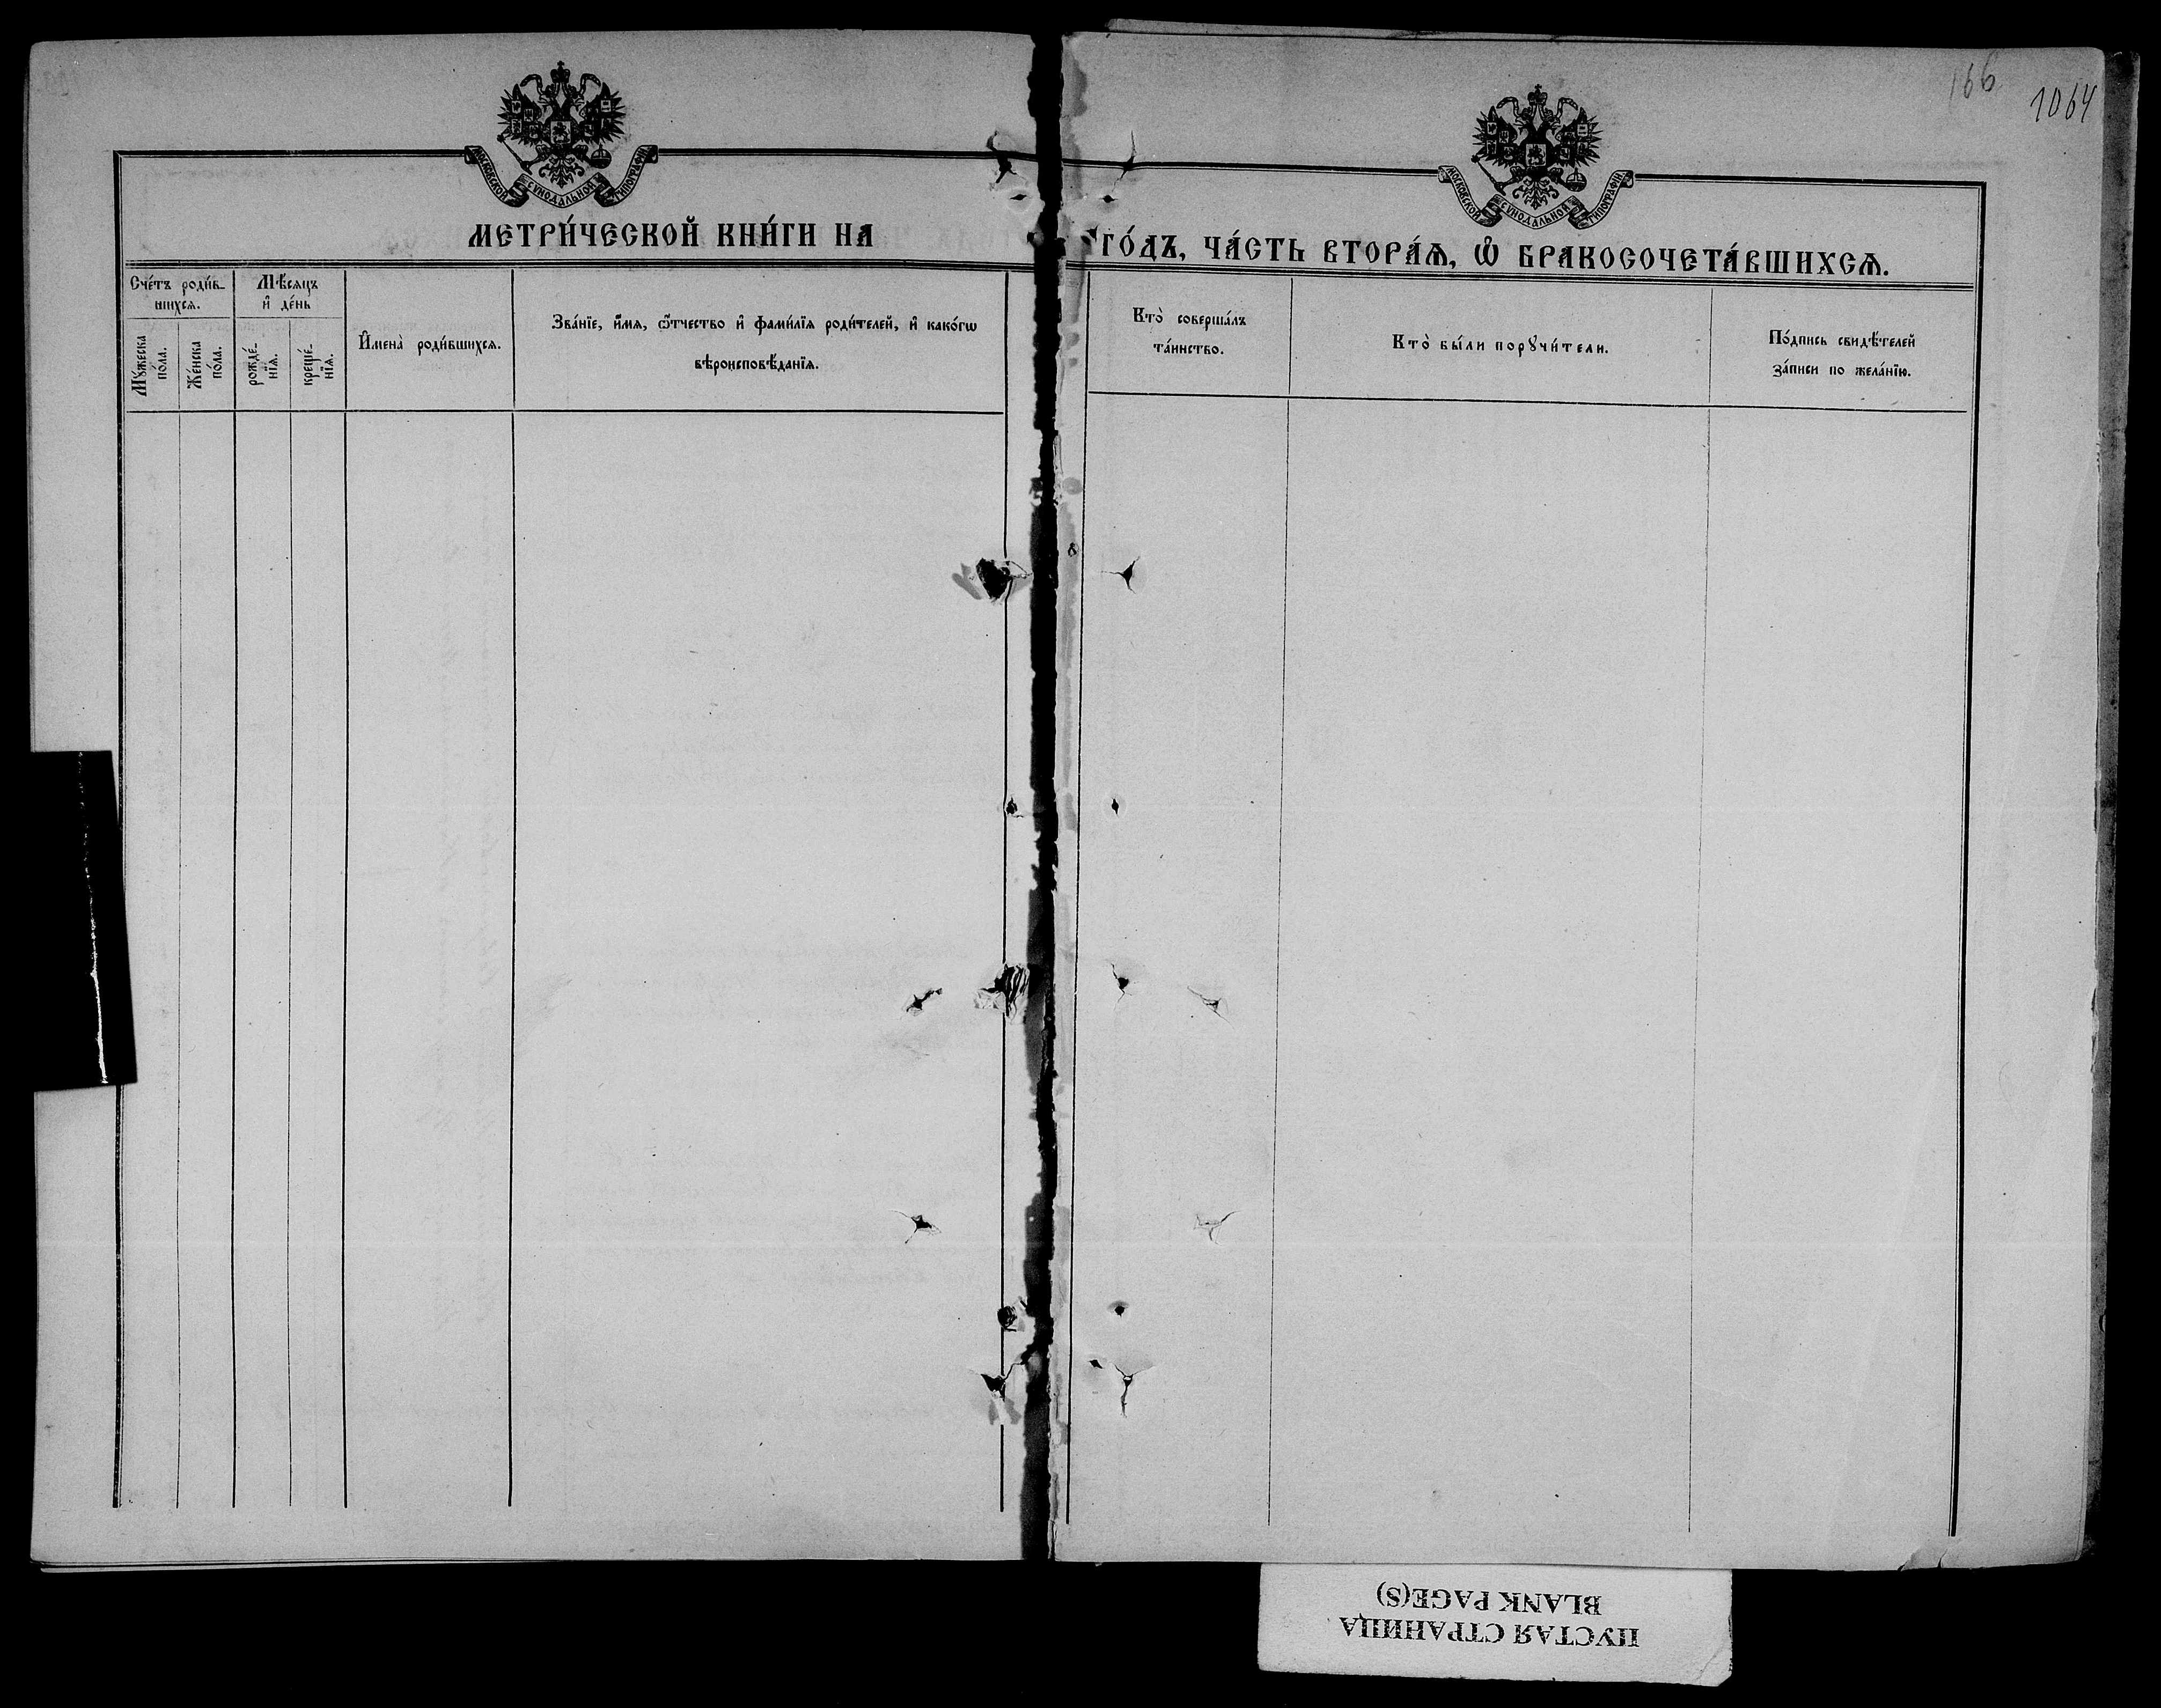 166
1064
МОСКОВСКОЙ СѴНОДАЛЬНОЙ ТИПОГРАФІИ
МОСКОВСКОЙ СѴНОДАЛЬНОЙ ТИПОГРАФІИ
МЕТРИ́ЧЕСКОЙ КНИ́ГИ НА
ГО́ДЪ, ЧА́СТЬ ВТОРА́Ѧ, Ѽ БРАКОСОЧЕТА́ВШИХСѦ.
Сче́тъ роди́в-
шихсѧ.
Мꙋ́жеска
по́ла.
Же́нска
по́ла.
Мѣ́сѧцъ
и҆ де́нь
рожде́-
нїѧ.
креще́-
нїѧ.
И҆мена̀ роди́вшихсѧ.
Зва́нїе, и҆́мѧ, ѻ҆́тчество и҆ фами́лїѧ роди́телей, и҆ како́гѡ
вѣроисповѣ́данїѧ.
Кто̀ соверша́лъ
та́инство.
Кто̀ бы́ли порꙋчи́тели.
По́дпись свидѣ́телей
за́писи по жела́нїю.
ПУСТАЯ СТРАНИЦА
BLANK PAGE(S)